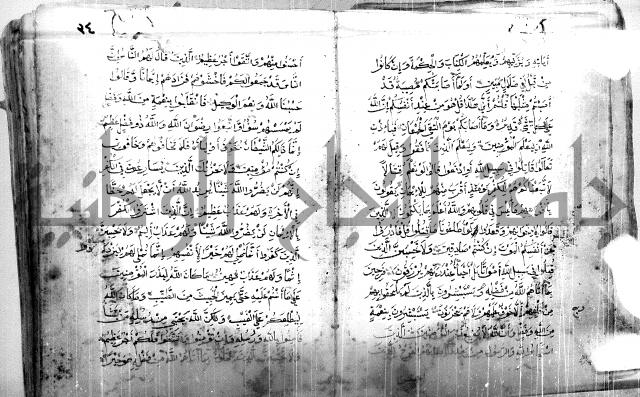 اياته ويزكيهم ويعلمهم الكتاب والحكمة وان كانوا
من قبل لفي ضلال مبين اولما اصابتكم مصيبة قد
اصبتم مثليها قلتم انى هذا قل هو من عند انفسكم ان الله
على كل شيء قدير وما اصابكم يوم التقى الجمعان فباذن
الله وليعلم المؤمنين وليعلم الذين نافقوا وقيل لهم
تعالوا قاتلوا في سبيل الله او ادفعوا قالوا لو نعلم قتالا
لاتبعناكم هم للكفر يومئذ اقرب منهم للايمان يقولون
بافواههم ما ليس في قلوبهم والله اعلم بما يكتمون الذين
قالوا لاخوانهم وقعدوا لو اطاعونا ما قتلوا قل فادرؤا
عن انفسكم الموت ان كنتم صادقين ولا تحسبن الذين
قتلوا في سبيل الله امواتا بل احياء عند ربهم يرزقون فرحين
بما اتاهم الله من فضله ويستبشرون بالذين لم يلحقوا بهم
من خلفهم الا خوف عليهم ولا هم يحزنون يستبشرون بنعمة
من الله وفضل وان الله لا يضيع اجر المؤمنين الذين
استجابوا لله والرسول من بعد ما اصابهم القرح للذين
٣٤
احسنوا منهم واتقوا اجر عظيم الذين قال لهم الناس ان
الناس قد جمعوا لكم فاخشوهم فزادهم ايمانا وقالوا
حسبنا الله ونعم الوكيل فانقلبوا بنعمة من الله وفضل
لم يمسسهم سوء واتبعوا رضوان الله والله ذو فضل عظيم
انما ذلكم الشيطان يخوف اولياءه فلا تخافوهم وخافون
ان كنتم مؤمنين ولا يحزنك الذين يسارعون في الكفر
انهم لن يضروا الله شيئا يريد الله ان لا يجعل لهم حظا
في الاخرة ولهم عذاب عظيم ان الذين اشتروا الكفر
بالايمان لن يضروا الله شيئا ولهم عذاب اليم ولا يحسبن
الذين كفروا انما نملي لهم خير لانفسهم انما نملي لهم ليزدادوا
اثما ولهم عذاب مهين ما كان الله ليذر المؤمنين
على ما انتم عليه حتى يميز الخبيث من الطيب وما كان الله
ليطلعكم على الغيب ولكن الله يجتبي من رسله من يشاء
فامنوا بالله ورسله وان تؤمنوا وتتقوا فلكم اجر عظيم
ولا يحسبن الذين يبخلون بما اتاهم الله من فضله هو خيرا
جامعة النجاح الوطنية